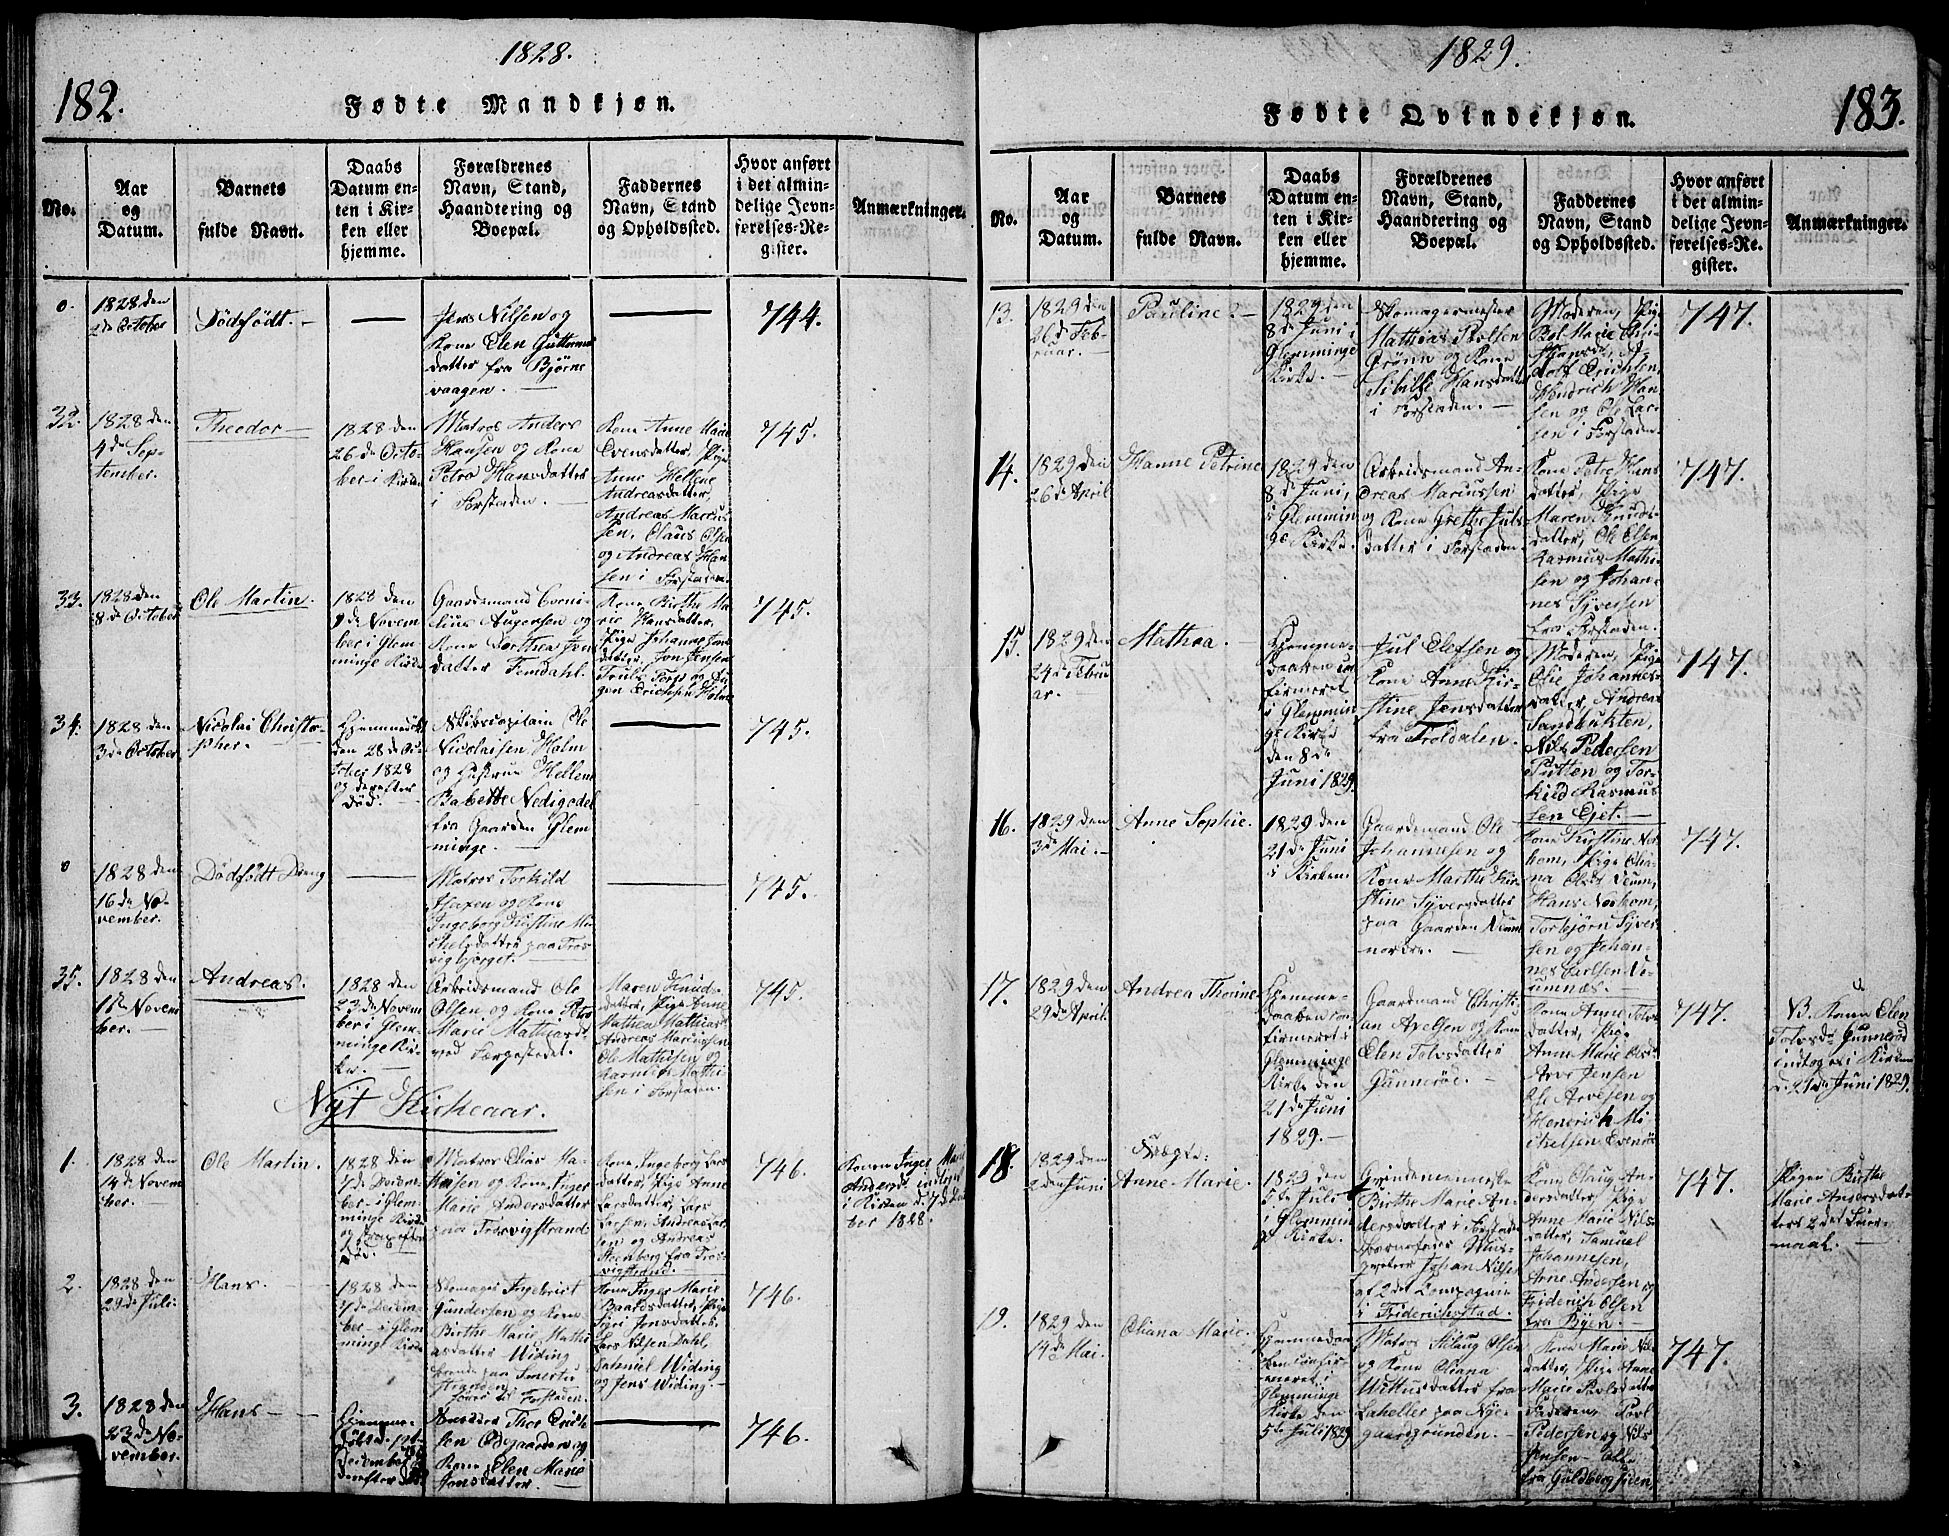 1828.
182.
Fødte Mandkjøn.
No.
Aar
og
Datum.
Barnets
fulde Navn.
Daabs
Datum en-
ten i Kir-
ken eller
hjemme.
Forældrenes
Navn, Stand,
Haandtering og
Boepæl.
Faddernes
Navn, Stand
og Opholdssted.
Hvor anført
i det almin-
delige Jevn-
førelses-Re-
gister.
Anmærkninger.
0.
1828 den
October
Dödfödt. —
Jens Nilsen og
Kone Elen Guttorms
datter fra Bjørne
vaagen. —
744.
32.
1828 den
4de Sep-
tember.
Theodor —
1828 den
26de Octo-
ber i Kirke
Matros Anders
Hansen og Kone
Petro Hansdatter
i Forstaden. —
Kone Anne Marie
Evensdatter, Pige
Anne Hellene
Andreasdatter,
Andreas Marcus
sen, Claus Olsen
og Andreas Han
sen i Forstaden
745.
33.
1828 den
8de October
Ole Martin.
1828 den
9de Novem
ber i Glem
minge Kirke
Gaardmand Corne
lius Augensen og
Kone Dorthea Jons
datter Femdahl. —
Kone Birthe Ma
rie Hansdatter,
Pige Johanne Jons
datter, Jon Jensen
745.
34.
1828 den
3de October
Nicolai Christo-
pher. —
den 28de Oc
tober 1828
og derefter
död. —
Skibscapitain Ole
Nicolaisen Holm
og Hustrue Hellene
Babette Nedigodel
fra Gaarden Glem
minge. —
745.
0
1828 den
16de No-
vember.
Dödfödt Dreng
Matros Torkild
og Kone
Ingeborg Kirstine Mi
chelsdatter paa Tros
vigbjerget. —
745.
35.
1828 den
Novem
ber.
Andreas.
1828 den
23de Novem
ber i Glem
minge Kir-
ke.
Arbeidsmand Ole
Olsen, og Kone Petro
Marie Mathiasd:
ved Færgestedet.
Maren Knuds-
datter, Pige Anne
Mathea Mathias
Andreas Marcussen
Ole Mathisen og
sen i Forstaden.
745.
Nyt Kirkeaar.
1.
1828 den
14de Novem
ber.
Ole Martin.
1828 den
7de Decem
ber i Glem
minge Kirke
Matros Elias Ha-
og Kone Inger
Marie Andersdatter
paa Trosvigstrand
Kone Ingeborg Lars
datter, Pige Anne
Larsdatter, Lars
Andreas Lar
sen og Andreas
Steenberg fra Tros
vigstrand. —
746.
Konen Inger Marie
Andersd: indtagen
i Kirken d. 7 de Decem
ber 1828. —
2.
1828 den
29de Juli
Hans.
1828 den
7de Decem
ber i Glem
minge Kirke
Skomager Ingebrict
Gundersen og Kone
Birthe Marie Mathi
asdatter Widing
Kone Inger Marie
Baardsdatter, Pige
Siri Jonsdatter,
Lars Nilsen Dahl,
Daniel Widing
og Jens Widing. —
746.
3.
1828 den
23de No-
vember.
Hans —
Thor Erich
sen og
Kone Elen Marie
Jonsdatter.
746.
1829.
183.
Fødte Qvindekjøn.
No.
Aar
og
Datum.
Barnets
fulde Navn.
Daabs
Datum en-
ten i Kir-
ken eller
hjemme.
Forældrenes
Navn, Stand,
Haandtering og
Boepæl.
Faddernes
Navn, Stand
og Opholdssted.
Hvor anført
i det almin-
delige Jevn-
førelses-Re-
gister.
Anmærkninger.
13.
1829 den
26de Feb-
ruar. —
Pauline —
1829 den
8de Juni i
Glemminge
Kirke. —
Skomagermester
Mathias Povelsen
Grönn og Kone
Sibille Hansdatter
i Forstaden. —
Moderen, Pige
Marie Chri-
Erichsen,
Hendrich Han
sen og Ole Lar-
sen i Forstaden.
747.
14.
1829 den
26de April
Hanne Petrine
1829 den
8de Juni,
i Glemmin
ge Kirke.
Arbeidsmand An-
dreas Marcussen
og Kone Grethe Juls
datter i Forstaden.
Kone Petre Hans
datter, Pige
Maren Knuds-
datter, Ole Olsen
Rasmus Mathi
sen og Johan
nes Syversen
fra Forstaden.
747.
15.
1829 den
24de Febru
ar.
Mathea. —
Hjemme-
daaben con
firmeret
i Glemmin
ge Kirke
den 8de
Juni 1829.
Jul Elefsen og
Kone Anne Kir-
stine Jensdatter
fra Troldalen. —
Moderen, Pige
Olie Johannes-
datter, Andreas
Sandbukten,
Nils Pedersen
Putten og Tor-
kild Rasmus
sen Ejet. —
747.
16.
1829 den
3de Mai. —
Anne Sophie.
1829 den
21de Juni
i Kirken.
Gaardmand Ole
Johannesen og
Kone Marthe Kir-
stine Syversdatter
paa Gaarden Veum
nordre. —
Kone Kirstine Nor
hom, Pige Olia-
na Olsd: Veum,
Hans Norhom,
Torbjørn Syver
sen og Johan-
nes Carlsen Ve-
umnæs. —
747.
17.
1829 den
29de April
Andrea Thorine
Hjemme-
daaben con
firmeret i
Glemminge
Kirke den
21de Juni
1829. —
Gaardmand Christi
an Axelsen og Kone
Elen Tolvsdatter
Gunneröe. —
Kone Anne Tolvs
datter, Pige
Anne Marie Olsd:
Arve Jensen
Ole Arvesen og
Henrich Mi
chelsen Evenrö
747.
NB. Konen Elen
Tolvsd: Gunneröd
indtagen i Kirken
d. 21de Juni 1829.
18.
1829 den
2den Juni
Uægte:
Anne Marie.
1829 den
5te Juli
i Glemmin
ge Kirke.
Qvindemenneske
Birthe Marie An-
dersdatter i Forstaden
Barnefader Mus-
queteer Johan Nilsen
af 2det Compagnie
i Friderichsstad.
Kone Olaug An-
dersdatter, Pige
Anne Marie Nils-
datter, Samuel
Johannesen,
Arne Andersen og
Friderich Olsen
fra Byen. —
747.
Pigen Birthe
Marie Andersdat
ters 2det Leier-
maal. —
19.
1829 den
14de Mai.
Oliana Marie.
Hjemmedaa
ben confir-
meret i
Glemminge
Kirke den
5te Juli 1829
Matros Aslaug Olsen
og Kone Oliana
Wittusdatter fra
Laheller paa Nye-
gaardgrunden. —
Kone Marie Nils
datter, Pige Anne
Marie Povlsdatter
Faderen, Povl
Pedersen og Nils
Jensen — alle
fra Guldbergsiden
747.